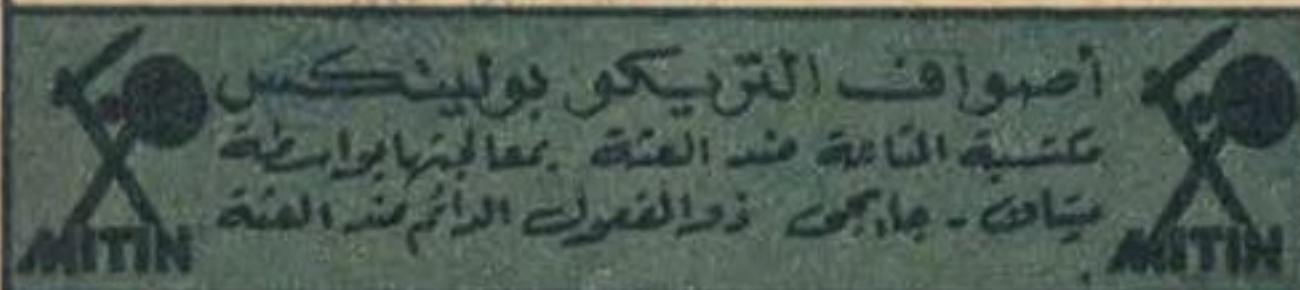 أصواف التريكو بولينكس
مكتسبة المناعة ضد العثة بمعالجتها بواسطة
ميتان - جايجى ذو المفعول الدائم ضد العثة
MITIN
MITIN